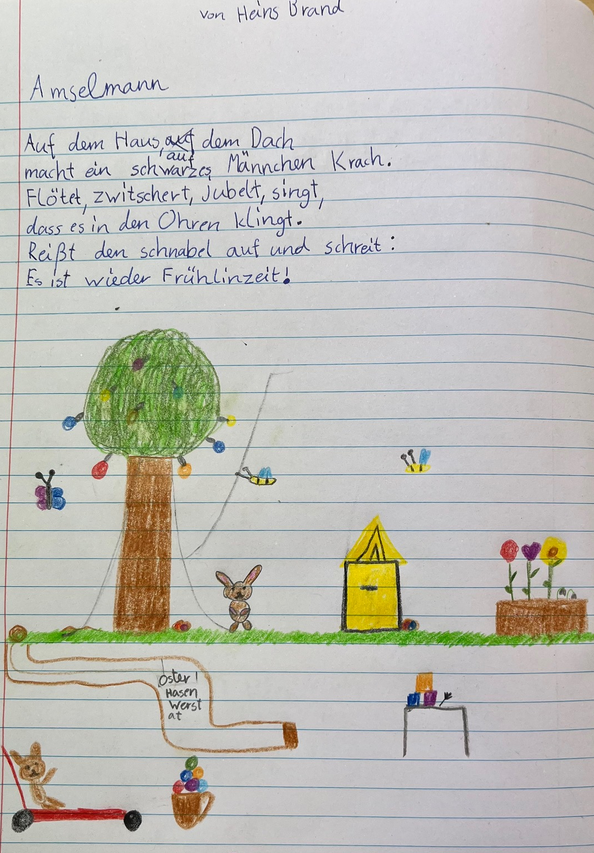 von Heins Brand
Amselmann
Auf dem Haus, auf dem Dach
macht ein schwarzes Männchen Krach.
Flötet, zwitschert, Jubelt, singt,
dass es in den Ohren klingt.
Reißt den schnabel auf und schreit:
Es ist wieder Frühlinzeit!
Oster
Hasen
Werst
at